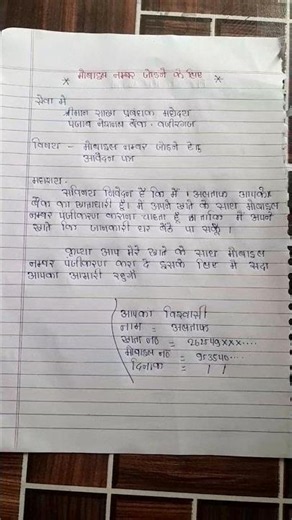 * मोबाइल नम्बर जोड़ने के लिए *
सेवा में
श्रीमान शाखा प्रबंधक महोदय
पंजाब नेशनल बैंक - वजीरगंज
विषय - मोबाइल नम्बर जोड़ने हेतु
आवेदन पत्र
महाशय
सविनय निवेदन है कि मैं अलताफ आपके
बैंक का खाताधारी हूँ। मैं अपने खाते के साथ मोबाइल
नम्बर पंजीकरण कराना चाहता हूँ ताकि मैं अपने
खाते कि जानकारी घर बैठे पा सकूँ।
कृप्या आप मेरे खाते के साथ मोबाइल
नम्बर पंजीकरण करा दे इसके लिए मैं सदा
आपका आभारी रहूगाँ
आपका विश्वासी
नाम = अलताफ
खाता न० = 262549×××....
मोबाइल न० = 953540....
दिनांक = / /